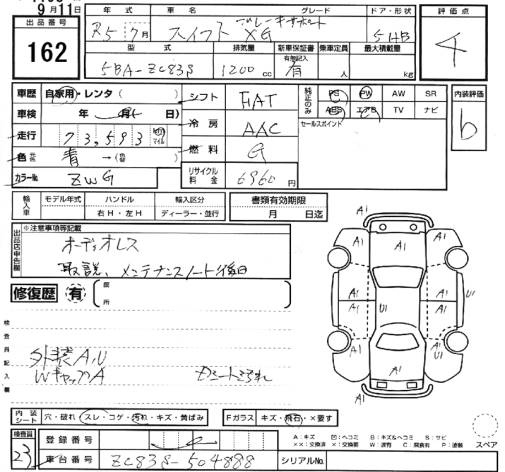 9月11日
出品番号
162
年式 車名 グレード ドア・形状
R5 7月 スイフト XG 5HB
評価点
4
型式 排気量 新車保証書 乗車定員 最大積載量
有無記入
5BA-ZC83S 1200 cc 有 人 kg
車歴 自家用・レンタ( )
車検 年 月( 日)
走行 73,593
色 青 →( )
カラーNo. ZWG
シフト FAT
冷房 AAC
燃料 G
リサイクル料金 6960 円
純正のみ
PS PW AW SR
ABS エアB TV ナビ
セールスポイント
内装評価
b
輸入車 モデル年式 ハンドル 輸入区分
年 右H・左H ディーラー・並行
書類有効期限
月 日迄
出品店申告欄
※注意事項等記載
オーディオレス
取説、メンテナンスノート後日
修復歴 有
箇所
検査員記入欄
外装A,U
WキャップA
A1
A1
A1
A1
A1
A1
U1
U1
A1
A1
A1
A1
内装シート 穴・破れ スレ・コゲ・汚れ・キズ・黄ばみ
Fガラス キズ・飛石・×要す
A:キズ U:ヘコミ B:キズ&ヘコミ S:サビ
××:交換済 ×:交換要 W:波有 C:腐食有 P:塗装
スペア
検査員
23
登録番号
車台番号 ZC83S-504888
シリアルNo.